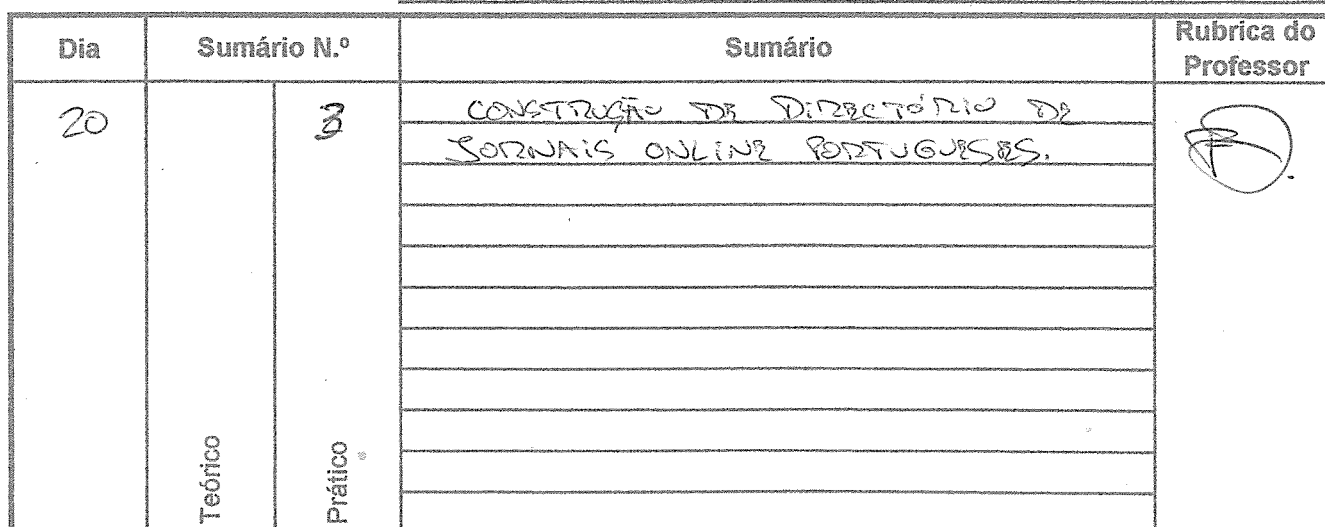 Dia Sumário N.º Sumário Rubrica do Professor
20 3 CONSTRUÇÃO DE DIRECTÓRIO DE
JORNAIS ONLINE PORTUGUESES.
Teórico
Prático